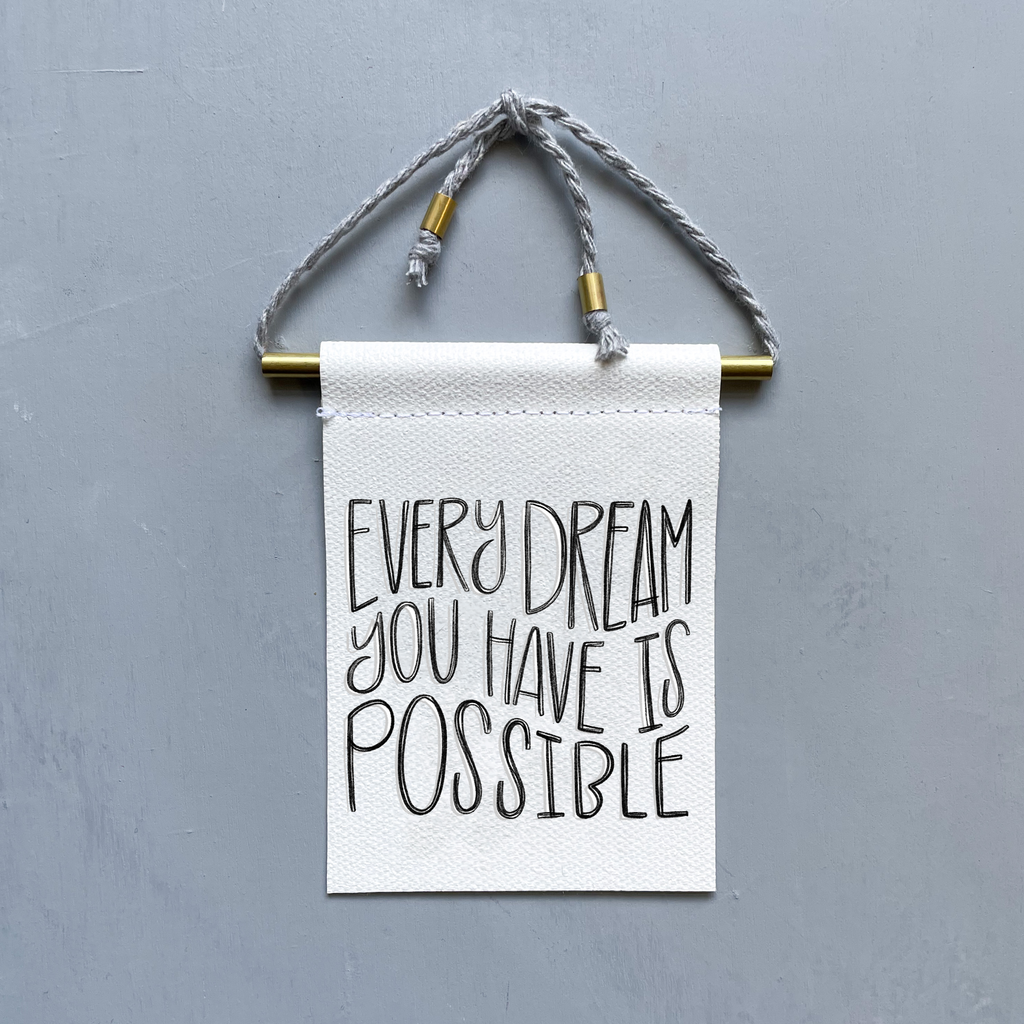 EVERY DREAM
YOU HAVE IS
POSSIBLE